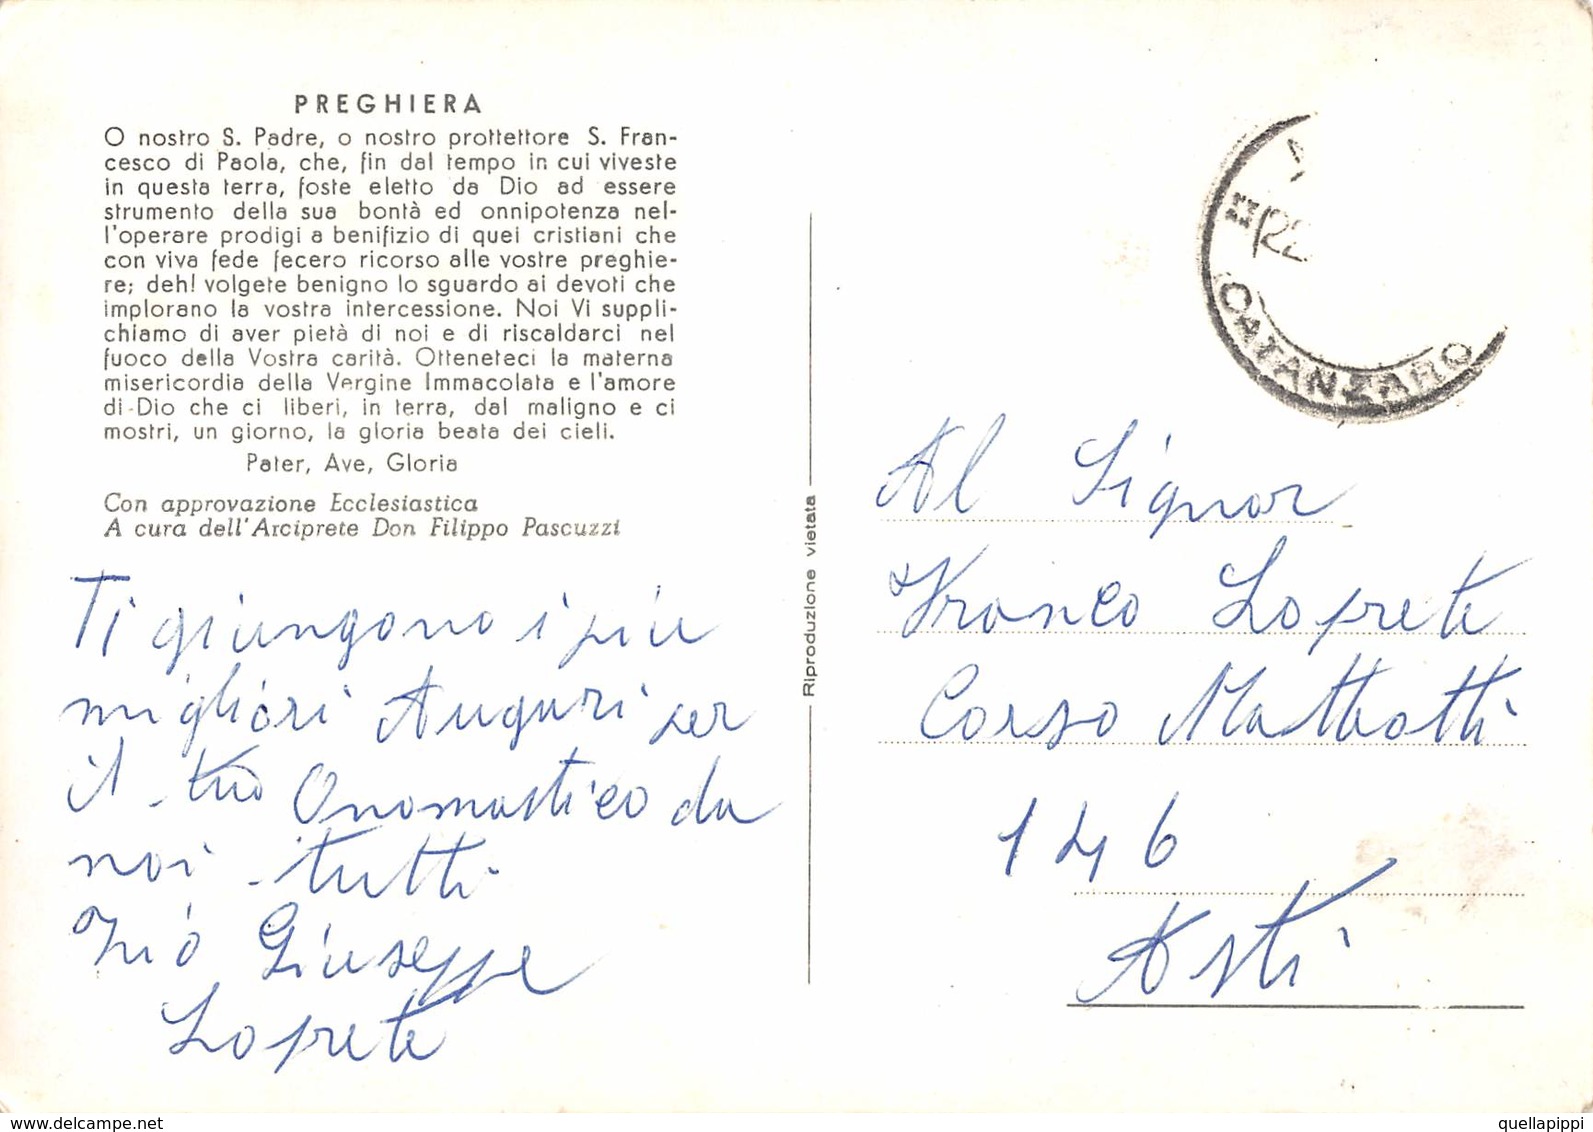 PREGHIERA
O nostro S. Padre, o nostro prottettore S. Fran-
cesco di Paola, che, fin dal tempo in cui viveste
in questa terra, foste eletto da Dio ad essere
strumento della sua bontà ed onnipotenza nel-
l'operare prodigi a benifizio di quei cristiani che
con viva fede fecero ricorso alle vostre preghie-
re; deh! volgete benigno lo sguardo ai devoti che
implorano la vostra intercessione. Noi Vi suppli-
chiamo di aver pietà di noi e di riscaldarci nel
fuoco della Vostra carità. Otteneteci la materna
misericordia della Vergine Immacolata e l'amore
di Dio che ci liberi, in terra, dal maligno e ci
mostri, un giorno, la gloria beata dei cieli.
Pater, Ave, Gloria
Con approvazione Ecclesiastica
A cura dell'Arciprete Don Filippo Pascuzzi
Ti giungono i più
migliori Auguri per
il tuo Onomastico da
noi tutti
Zio Giuseppe
Loprete
Riproduzione vietata
22
CATANZARO
Al Signor
Franco Loprete
Corso Matteotti
146
Asti
www.delcampe.net
quellapippi